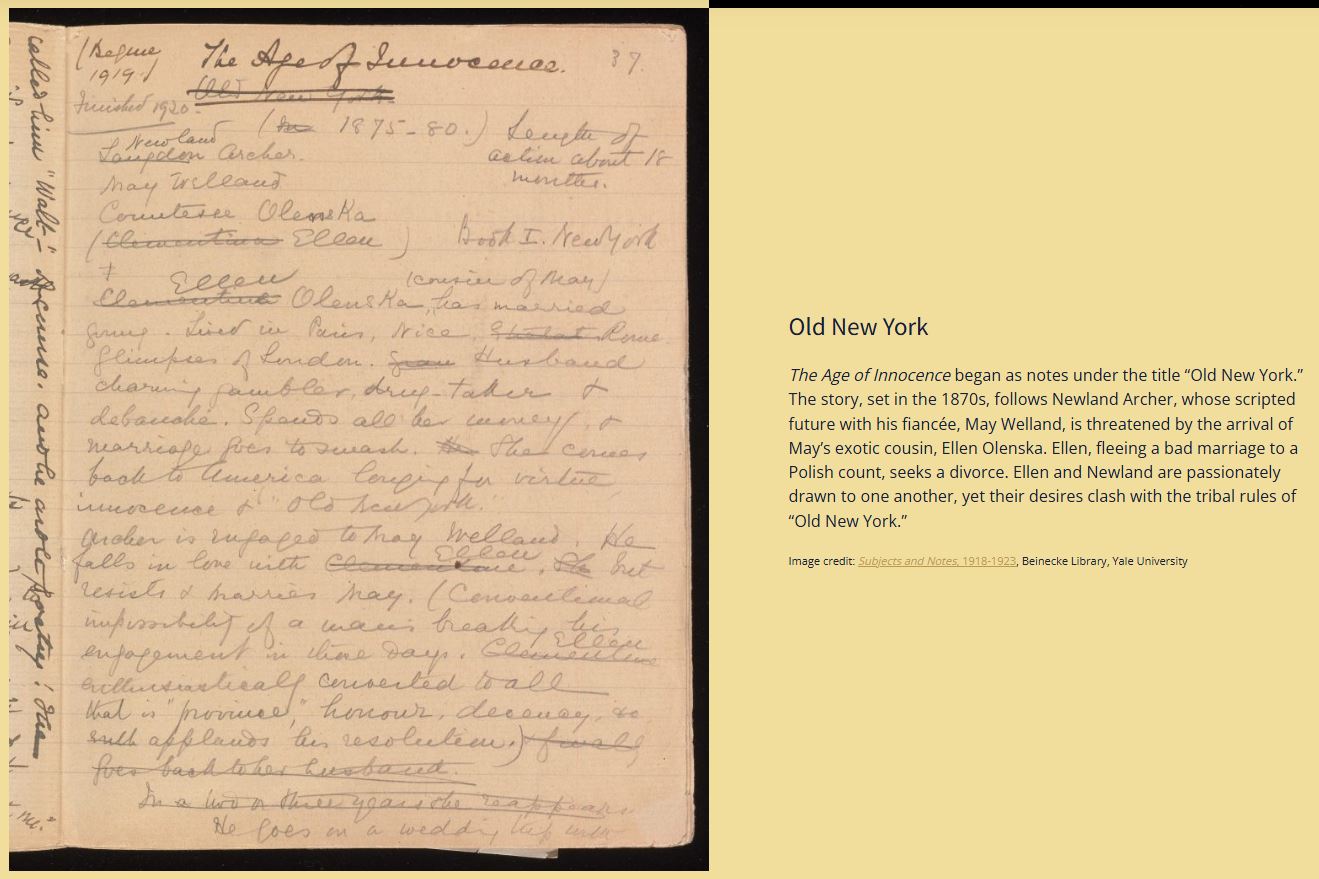 (Begun
1919)
The Age of Innocence.
37.
Old New York.
Finished 1920.
(In 1875-80.)
Length of
action about 18
months.
Newland
Langdon Archer.
May Welland
Countesse Olenska
(Clementina Ellen)
Book I. New York
+
Ellen (cousin of May)
Clementina Olenska, has married
young. Lived in Paris, Nice, Rome
Glimpses of London. Husband
charming gambler, drug-taker &
debauché. Spends all her money, &
marriage goes to smash. She comes
back to America longing for virtue,
innocence & "Old New York."
Archer is engaged to May Welland. He
Ellen
falls in love with Clementine. She but
resists & marries May. (Conventional
impossibility of a man's breaking his
Ellen
engagement in those days. Clementine
enthusiastically converted to all
that is "province," honour, decency, &c
applauds his resolution.) finally
goes back to her husband.
In a two or three years she reappears
He goes on a wedding trip with
called him "Walt"
Of course. and he wrote poetry!
Old New York
The Age of Innocence began as notes under the title “Old New York.”
The story, set in the 1870s, follows Newland Archer, whose scripted
future with his fiancée, May Welland, is threatened by the arrival of
May’s exotic cousin, Ellen Olenska. Ellen, fleeing a bad marriage to a
Polish count, seeks a divorce. Ellen and Newland are passionately
drawn to one another, yet their desires clash with the tribal rules of
“Old New York.”
Image credit: Subjects and Notes, 1918-1923, Beinecke Library, Yale University